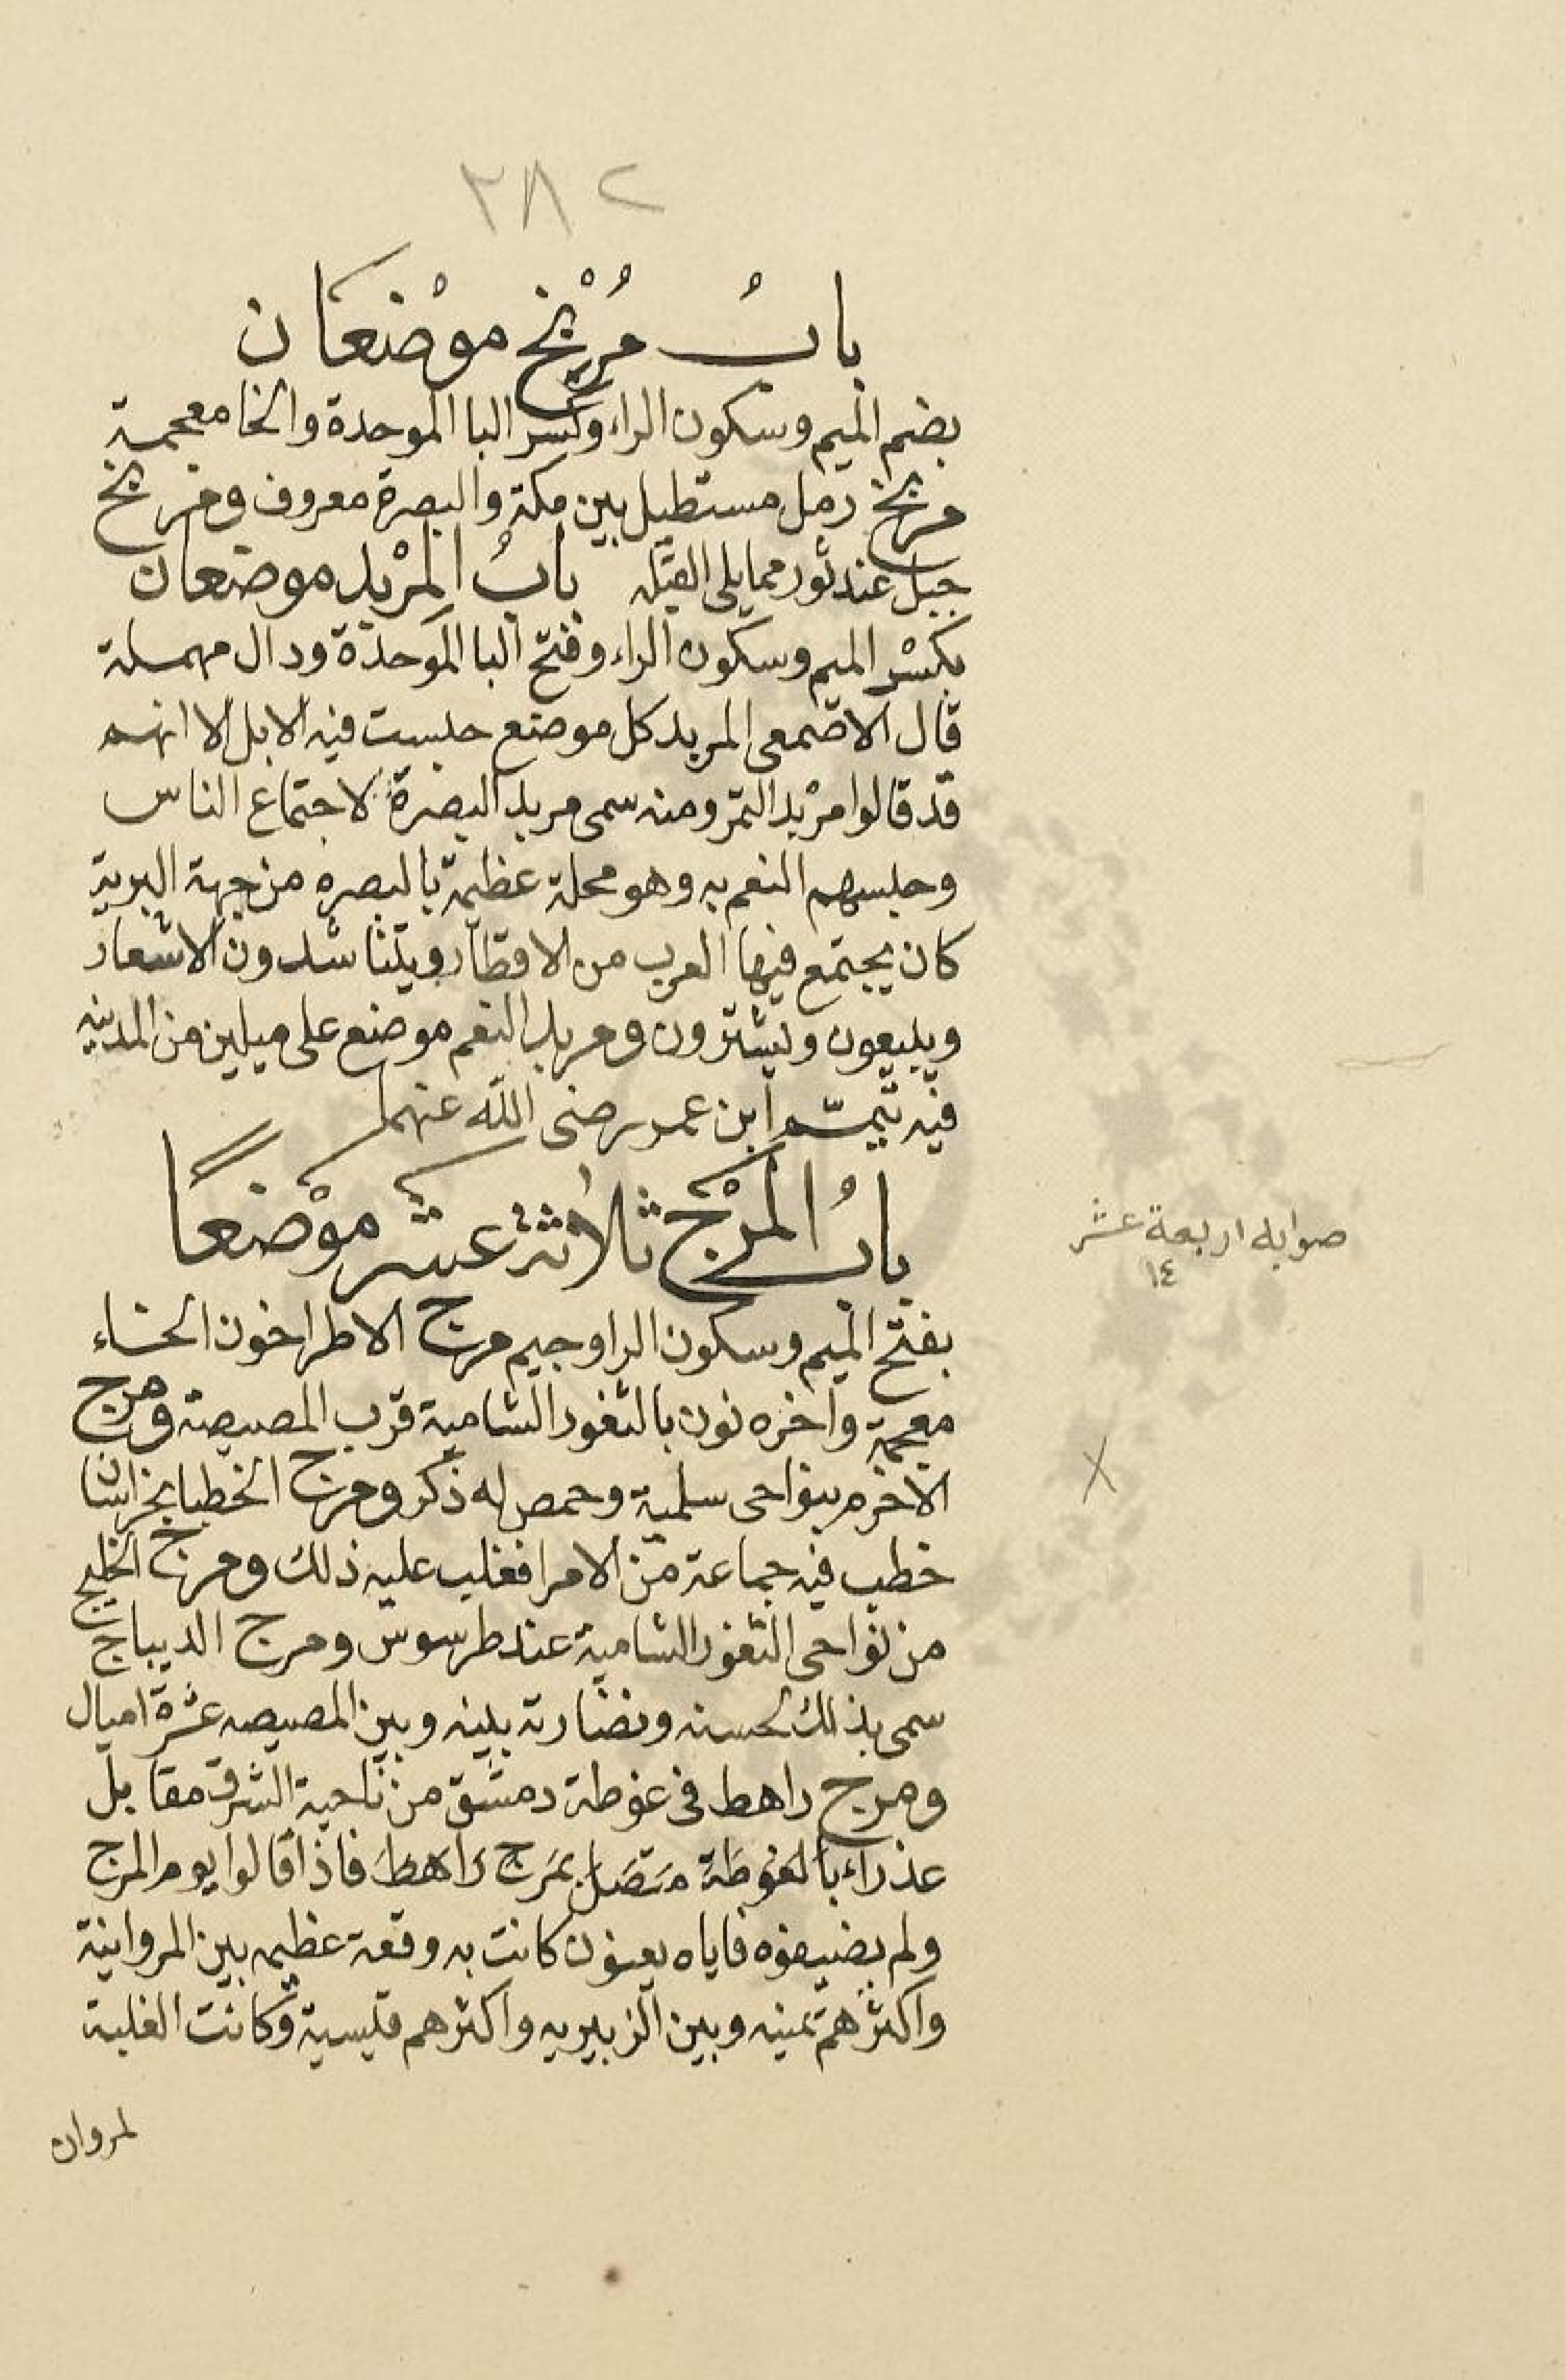 ٢٨٢
بابُ مُرْبخ موْضعَان
بضم الميم وسكون الراء وكسر البا الموحدة والخا معجمة
مربخ رمل مستطيل بين مكة والبصرة معروف ومربخ
جبل عند ثور مما يلى القبله بابُ المرْبد موضعان
بكسْر الميم وسكون الراء وفتح البا الموحدة ودال مهملة
قال الاصمعى المربد كل موضع حبست فيه الابل الا انهم
قد قالوا مرْبد التمر ومنه سمى مربد البصرة لاجتماع الناس
وحبسهم النعم به وهو محلة عظيمة بالبصره من جهة البرية
كان يجتمع فيها العرب من الاقطار ويتناشدون الاشعار
ويبيعون ويشترون ومربد النعم موضع على ميلين من المدينه
فيه تيمّم ابن عمر رضى الله عنهما
بابُ المرْج ثلاثة عشر موْضعًا
صوابه اربعة عشر
١٤
بفتح الميم وسكون الرا وجيم مرج الاطراخون الخاء
معجمة واخره نون بالثغور الشامية قرب المصيصة ومرج
الاخرم بنواحى سلمية وحمص له ذكر ومرج الخطبا بخراسان
خطب فيه جماعة من الامرا فغلب عليه ذلك ومرج الخليج
من نواحى الثغور الشامية عند طرسوس ومرج الديباج
سمى بذلك لحسنه ونضارته بينه وبين المصيصه عشرة اميال
ومرج راهط فى غوطة دمشق من ناحية الشرق مقابل
عذراء بالغوطة متصل بمرج راهط فاذا قالوا يوم المرج
ولم يضيفوه فاياه يعنون كانت به وقعة عظيمه بين المروانية
واكثرهم يمنيه وبين الزبيريه واكثرهم قيسية وكانت الغلبة
لمروان